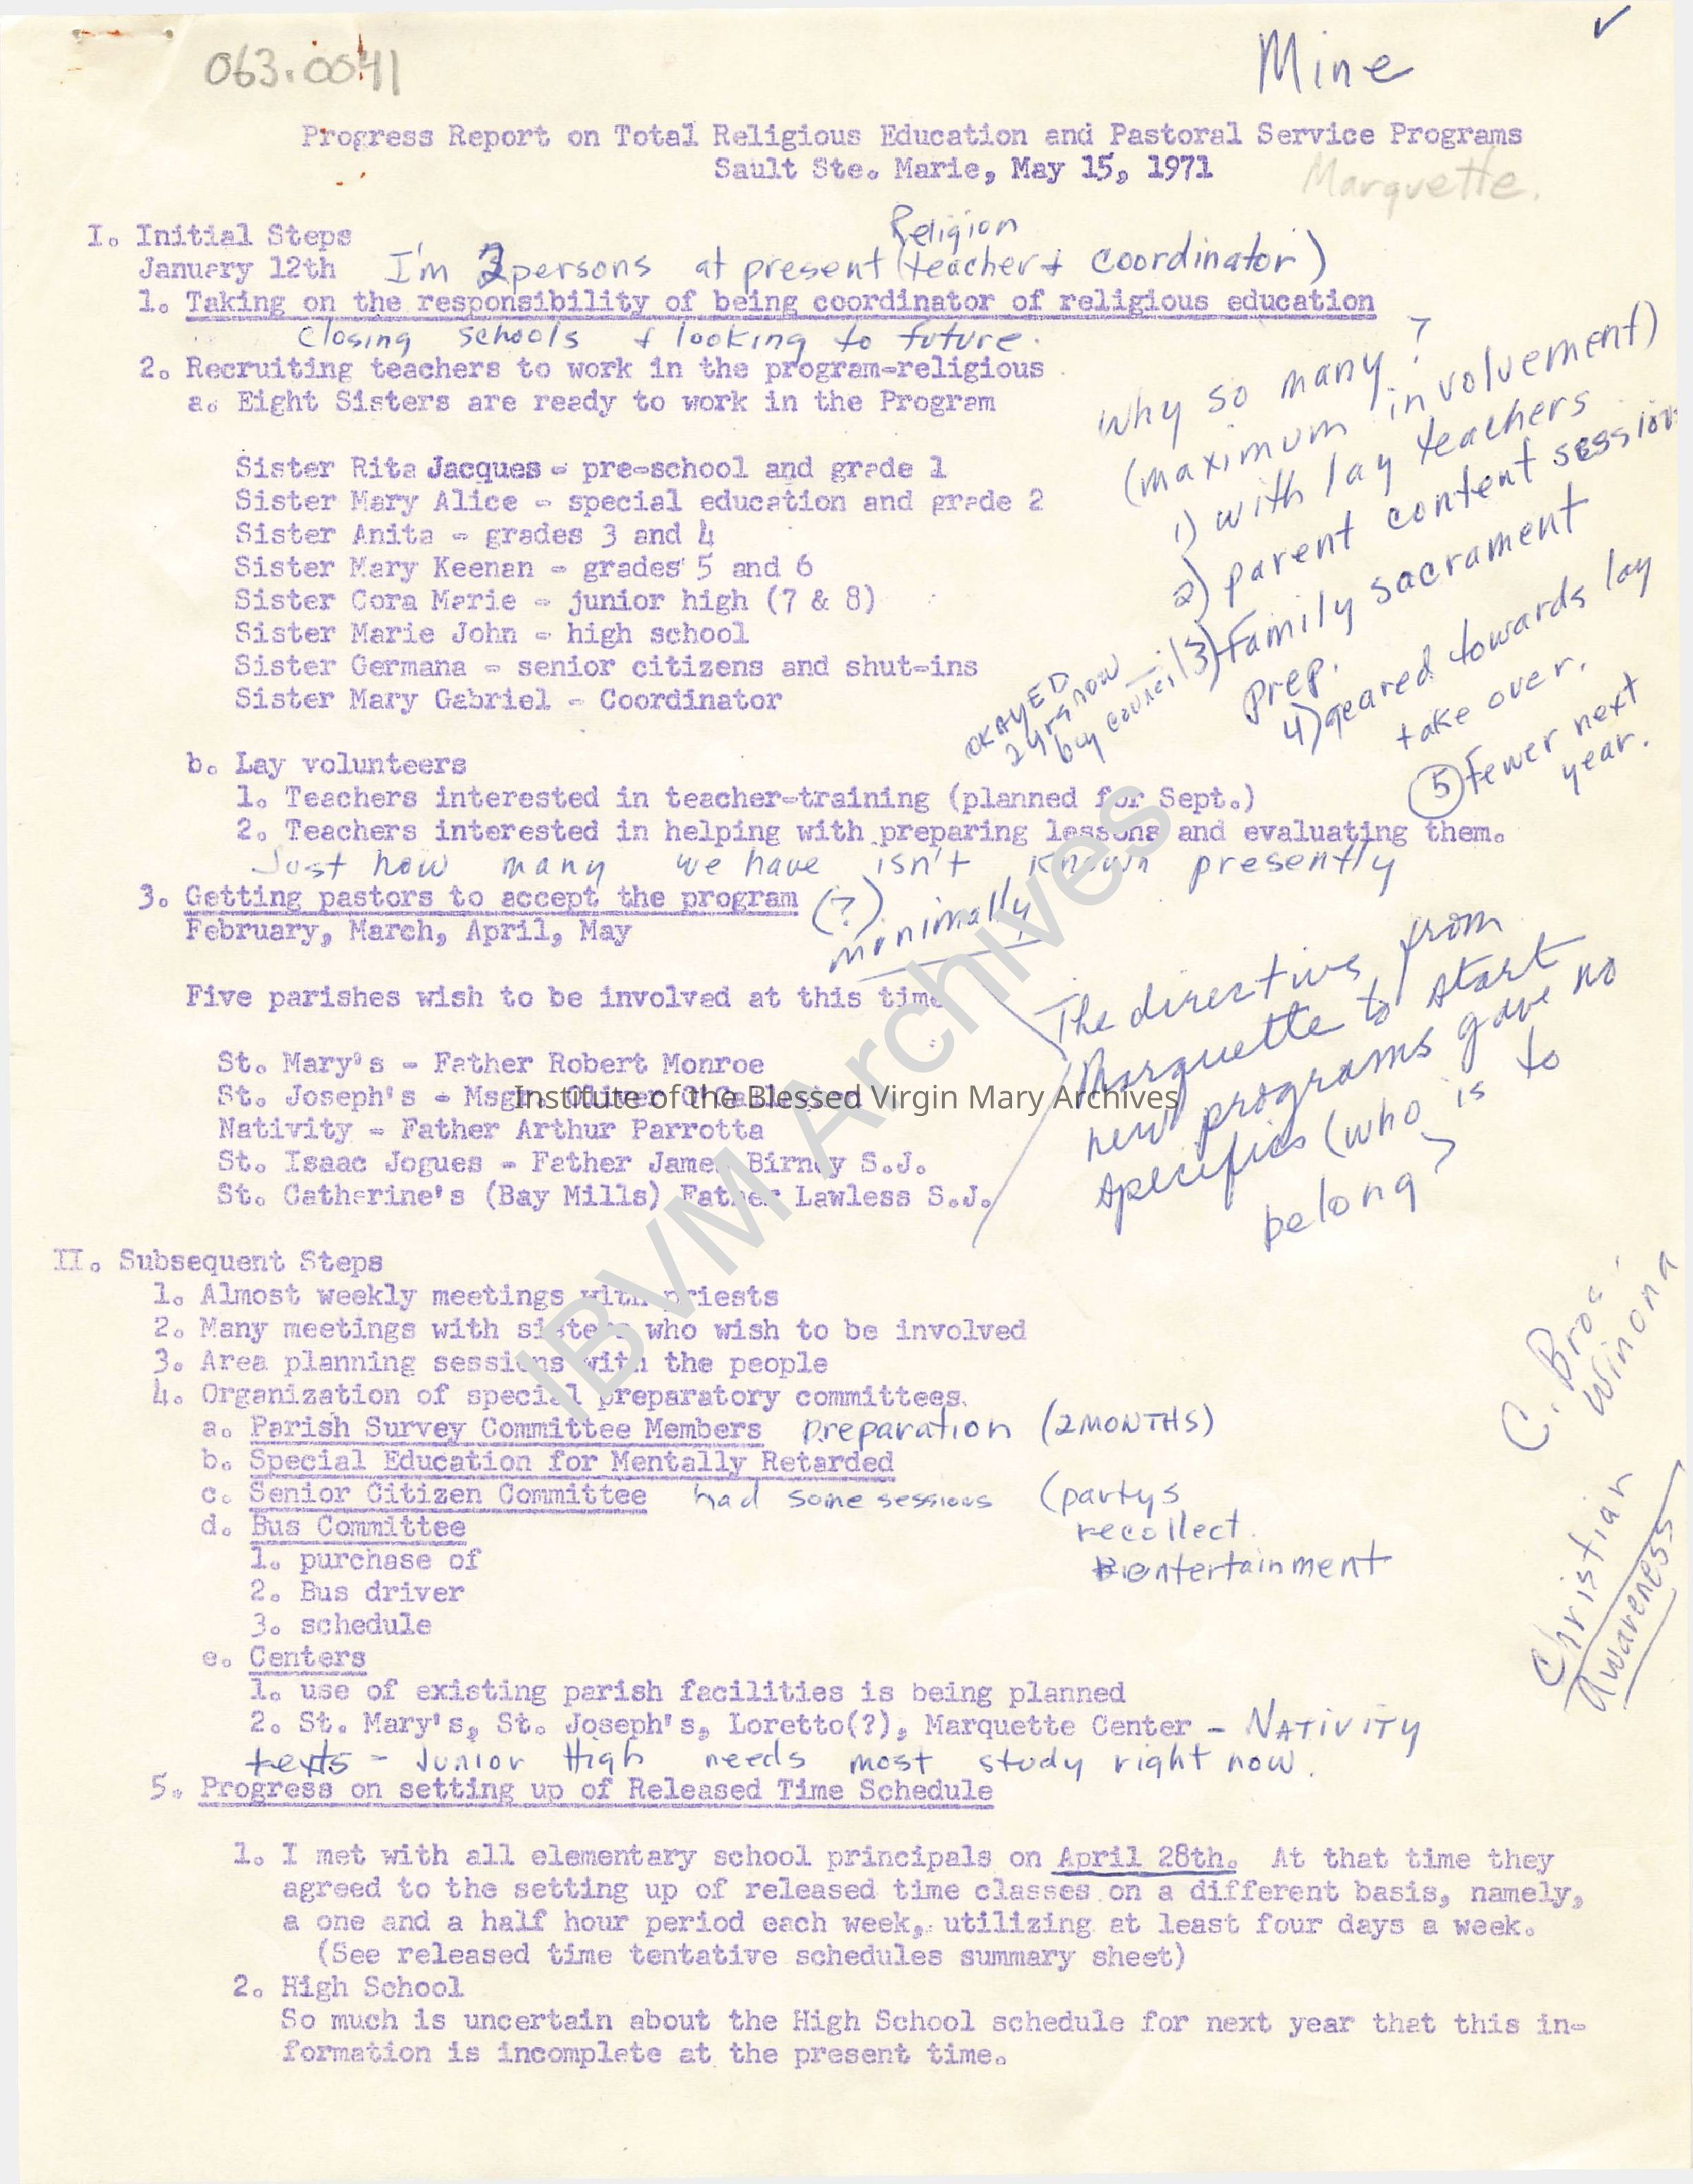 063.0041
Mine
Progress Report on Total Religious Education and Pastoral Service Programs
Sault Ste. Marie, May 15, 1971
Marquette.
I. Initial Steps
Religion
January 12th I'm 2 persons at present (teacher & coordinator)
1. Taking on the responsibility of being coordinator of religious education
closing schools & looking to future.
2. Recruiting teachers to work in the program-religious
a. Eight Sisters are ready to work in the Program
Sister Rita Jacques - pre-school and grade 1
Sister Mary Alice - special education and grade 2
Sister Anita - grades 3 and 4
Sister Mary Keenan - grades 5 and 6
Sister Cora Marie - junior high (7 & 8)
Sister Marie John - high school
Sister Germana - senior citizens and shut-ins
Sister Mary Gabriel - Coordinator
Why so many?
(maximum involvement)
1) with lay teachers
2) parent content session
3) Family sacrament
Prep.
4) geared towards lay
take over.
5 Fewer next
year.
OKAYED
2 yrs now
by council
b. Lay volunteers
1. Teachers interested in teacher-training (planned for Sept.)
2. Teachers interested in helping with preparing lessons and evaluating them.
Just how many we have isn't known presently
3. Getting pastors to accept the program (?)
minimally
February, March, April, May
Five parishes wish to be involved at this time
St. Mary's - Father Robert Monroe
St. Joseph's - Msgr. Oliver
Nativity - Father Arthur Parrotta
St. Isaac Jogues - Father James Birney S.J.
St. Catherine's (Bay Mills) Father Lawless S.J.
The directives from
Marquette to start
new programs gave no
specifics (who is to
belong)
Institute of the Blessed Virgin Mary Archives
IBVM Archives
II. Subsequent Steps
1. Almost weekly meetings with priests
2. Many meetings with sisters who wish to be involved
3. Area planning sessions with the people
4. Organization of special preparatory committees.
a. Parish Survey Committee Members preparation (2 MONTHS)
b. Special Education for Mentally Retarded
c. Senior Citizen Committee had some sessions (partys
recollect.
entertainment
d. Bus Committee
1. purchase of
2. Bus driver
3. schedule
e. Centers
1. use of existing parish facilities is being planned
2. St. Mary's, St. Joseph's, Loretto(?), Marquette Center - NATIVITY
texts - Junior High needs most study right now.
C. Bros.
Winona
Christian
Awareness
5. Progress on setting up of Released Time Schedule
1. I met with all elementary school principals on April 28th. At that time they
agreed to the setting up of released time classes on a different basis, namely,
a one and a half hour period each week, utilizing at least four days a week.
(See released time tentative schedules summary sheet)
2. High School
So much is uncertain about the High School schedule for next year that this in-
formation is incomplete at the present time.